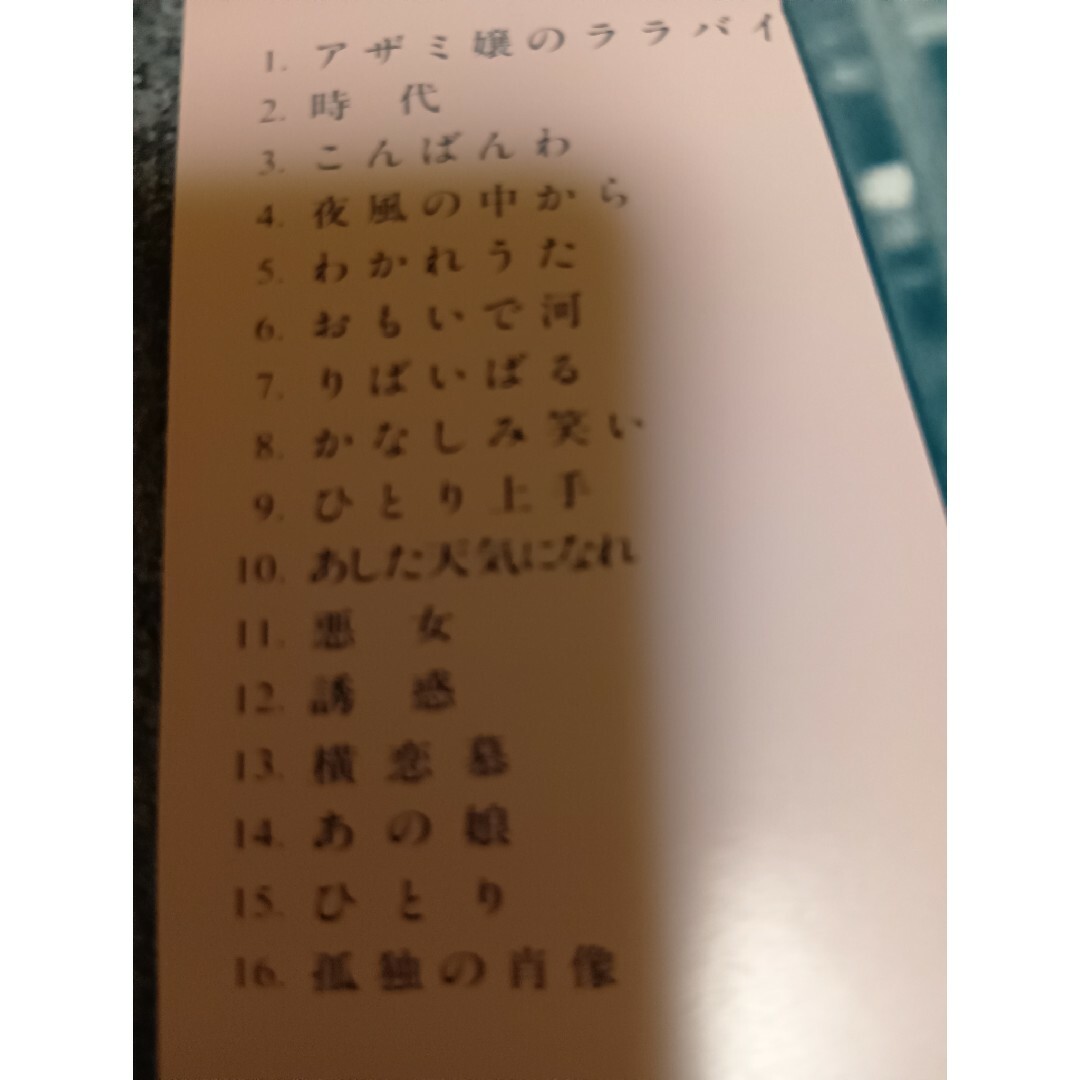 1. アザミ嬢のララバイ
2. 時代
3. こんばんわ
4. 夜風の中から
5. わかれうた
6. おもいで河
7. りばいばる
8. かなしみ笑い
9. ひとり上手
10. あした天気になれ
11. 悪女
12. 誘惑
13. 横恋慕
14. あの娘
15. ひとり
16. 孤独の肖像